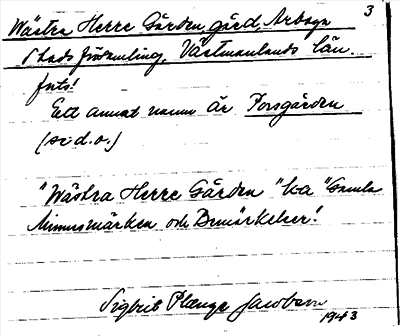 3
Wästra Herre Gården, gård, Arboga
Stads församling, Västmanlands län.
fints!
Ett annat namn är Forsgården
(se d.o.)
"Wästra Herre Gården" "Gamla
Minnesmärken och Bemärkelser!
Sigbrit Plænge Jacobson
1943